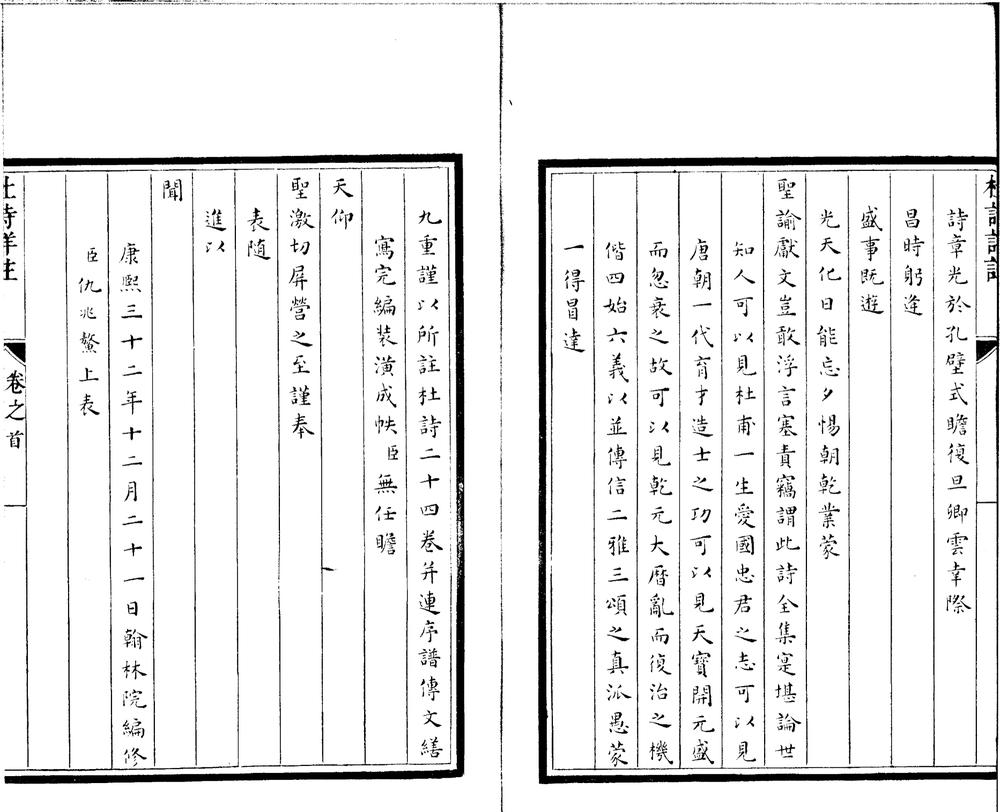 杜詩詳註
詩章光於孔壁式瞻復旦卿雲幸際
昌時躬逢
盛事旣遊
光天化日能忘夕惕朝乾業蒙
聖諭獻文豈敢浮言塞責竊謂此詩全集寔堪論世
知人可以見杜甫一生愛國忠君之志可以見
唐朝一代育才造士之功可以見天寶開元盛
而忽衰之故可以見乾元大曆亂而復治之機
偕四始六義以並傳信二雅三頌之真派愚蒙
一得冒達
九重謹以所註杜詩二十四卷并連序譜傳文繕
寫完編裝潢成帙臣無任瞻
天仰
聖激切屏營之至謹奉
表隨
進以
聞
康熙三十二年十二月二十一日翰林院編修
臣仇兆鰲上表
杜詩詳註
卷之首